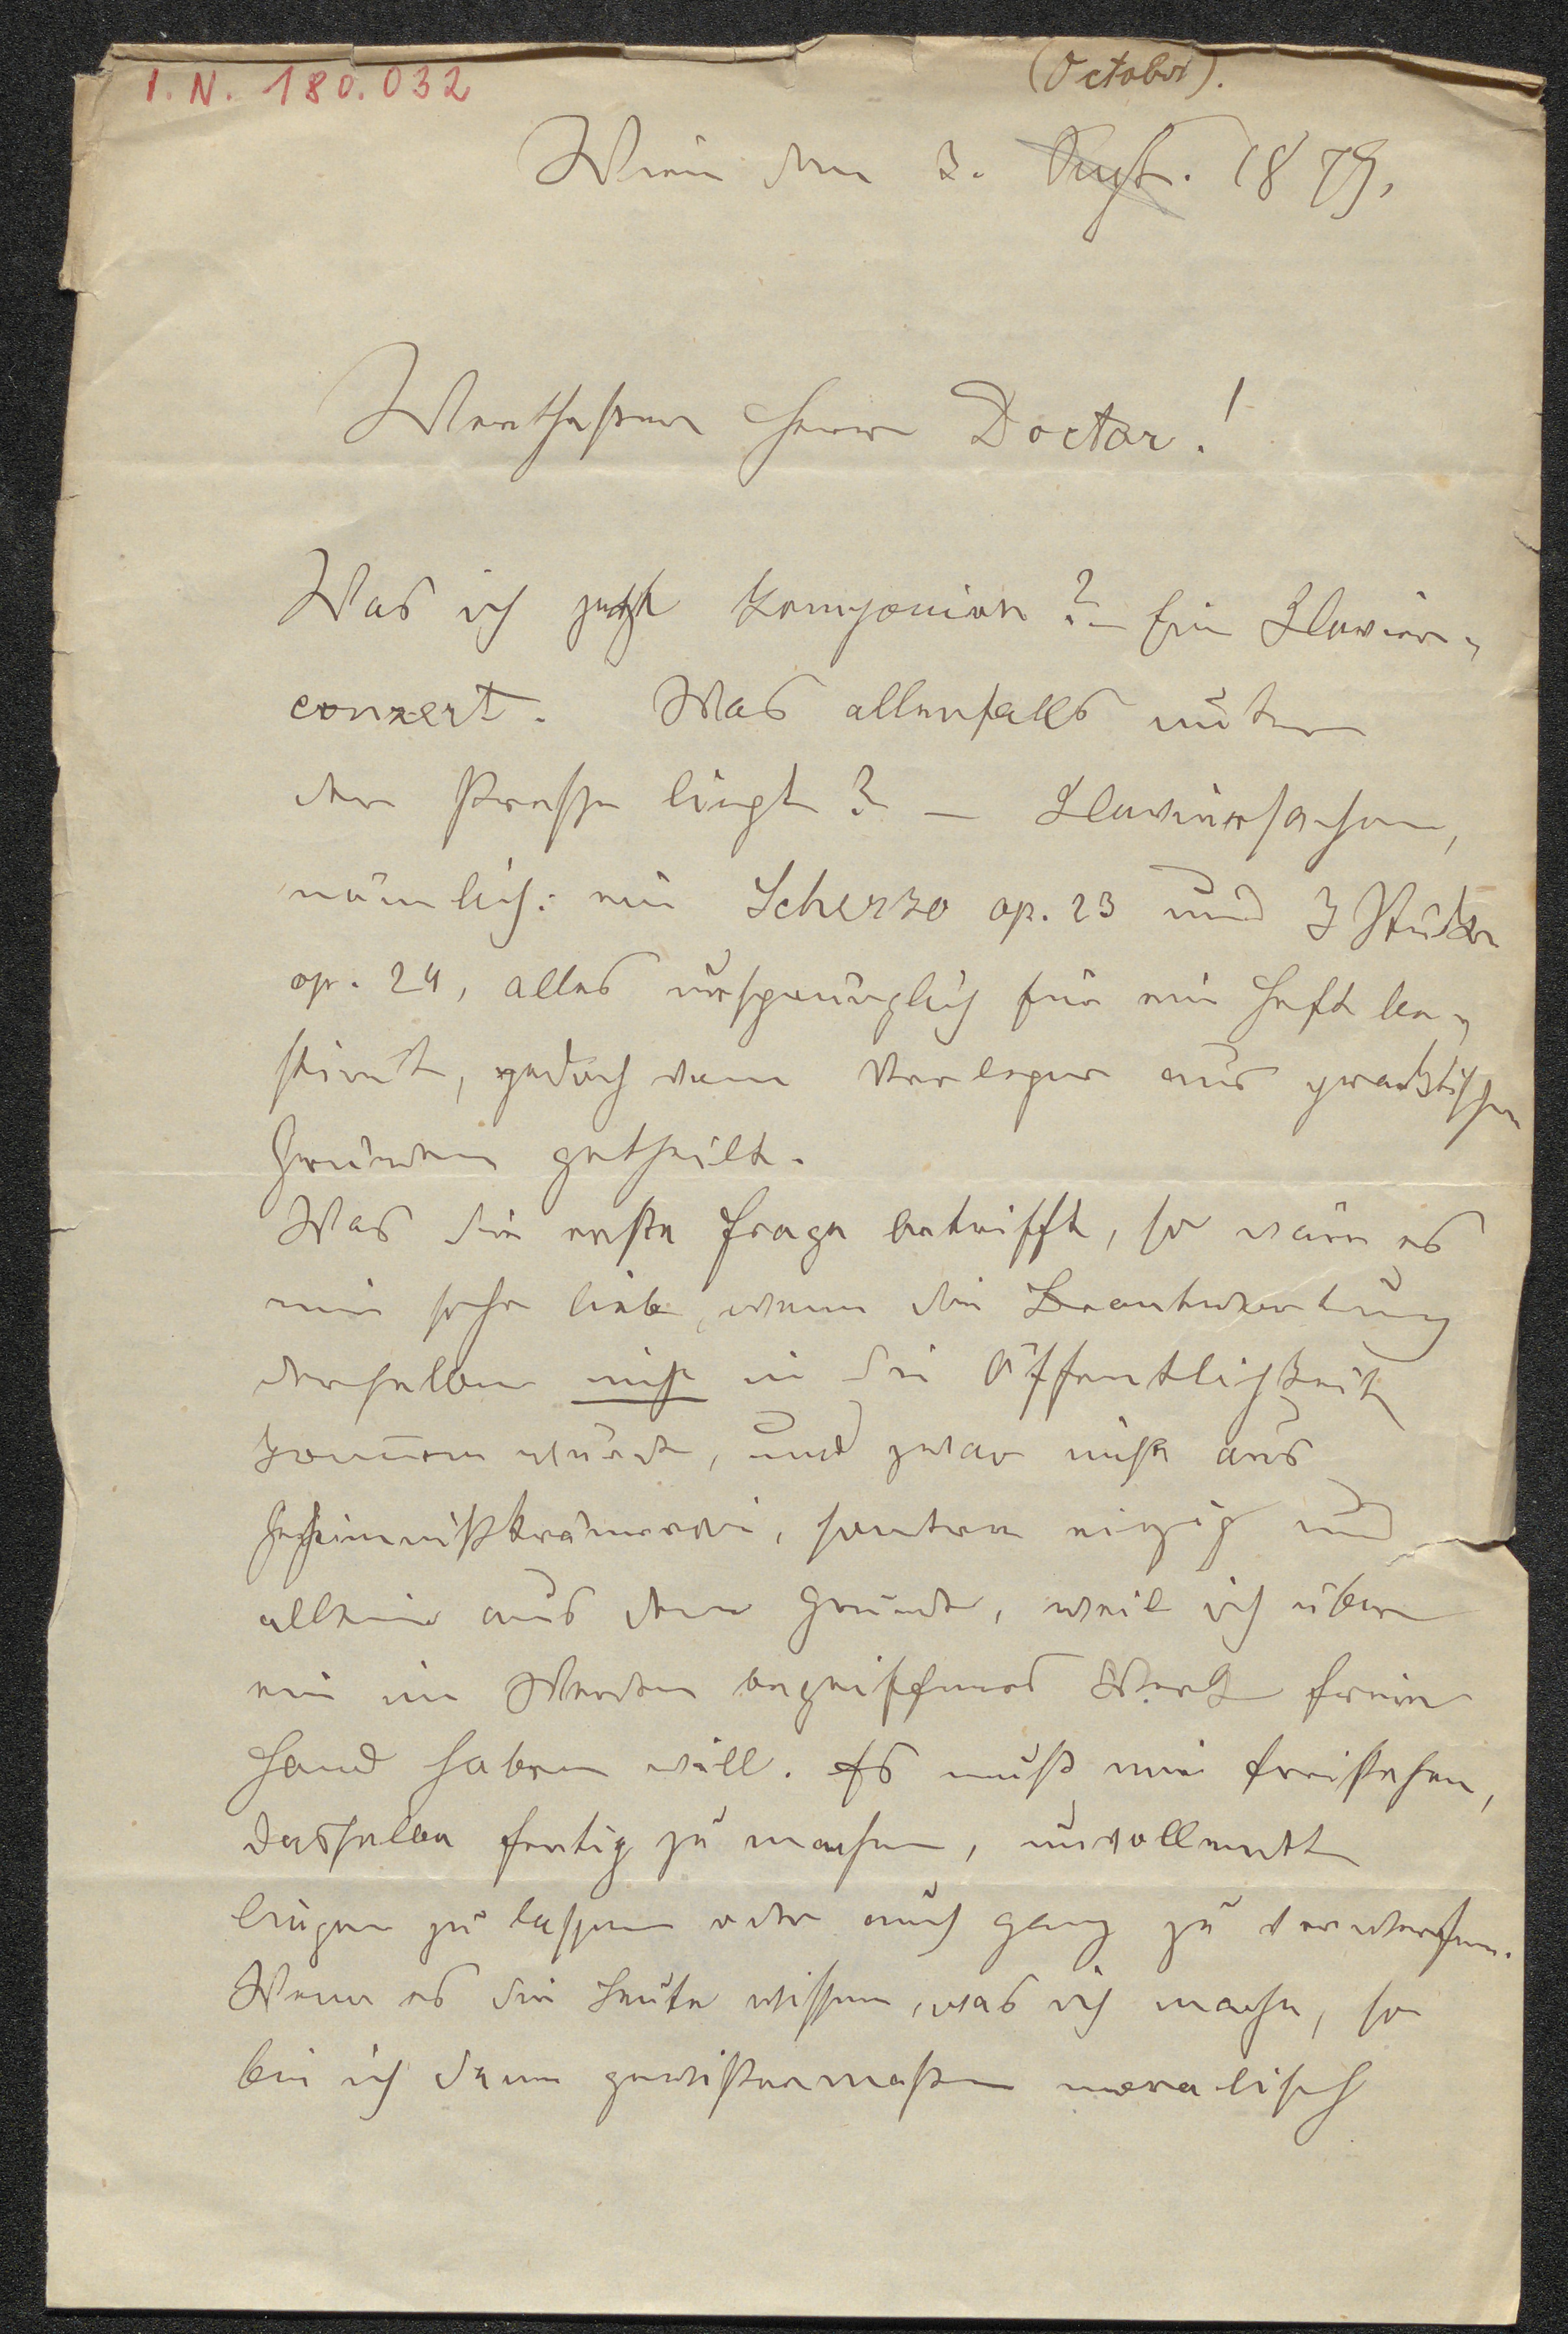 I. N. 180.032
(October).
Wien den 3. Sept. 1879.
Werthester Herr Doctor!
Was ich jetzt komponire? – Ein Klavier-
conzert. Was allenfalls unter
der Presse liegt? – Klaviersachen,
nämlich: ein Scherzo op. 23 und 3 Stücke
op. 24, alles ursprünglich für ein Heft be-
stimt, jedoch vom Verleger aus praktischen
Gründen getheilt.
Was die erste Frage betrifft, so wäre es
mir sehr lieb, wenn die Beantwortung
derselben nicht in die Öffentlichkeit
kom̅en würde, und zwar nicht aus
Geheimnißkrämerei, sondern einzig und
allein aus dem Grunde, weil ich über
ein im Werden begriffenes Werk freie
Hand haben will. Es muß mir freistehen,
dasselbe fertig zu machen, unvollendet
liegen zu lassen oder auch ganz zu verwerfen.
Wenn es die Leute wissen, was ich mache, so
bin ich dann gewissermaßen moralisch